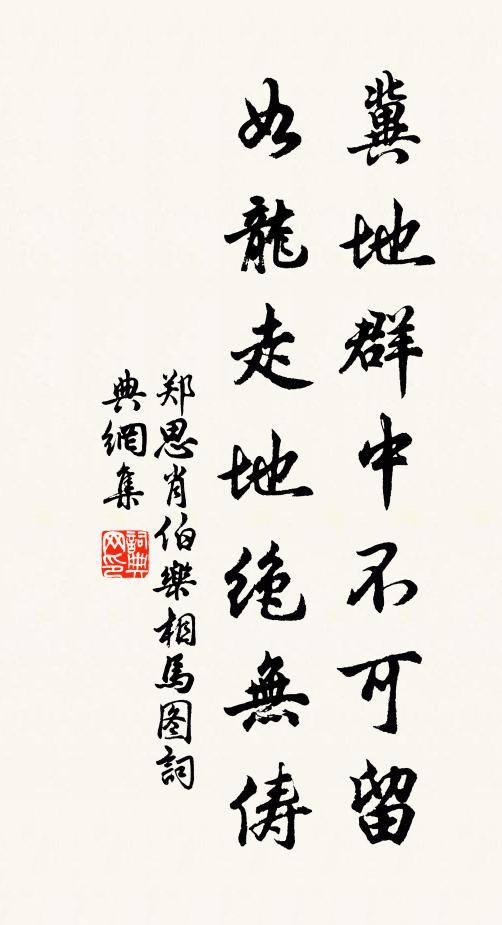 冀地群中不可留
如龍走地绝無俦
郑思肖伯樂相馬图詞
典網集
詞典
网印